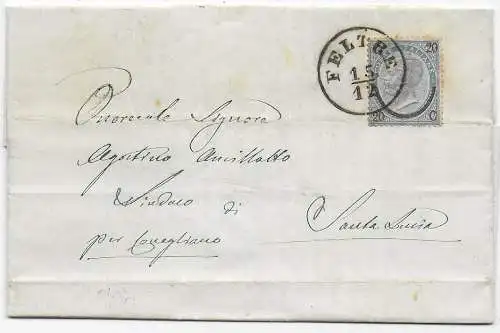 FELTRE
15
12
20 20
20 C
Onorevole Signore
Agostino Ancillotto
Sindaco di
Santa Lucia
per Conegliano